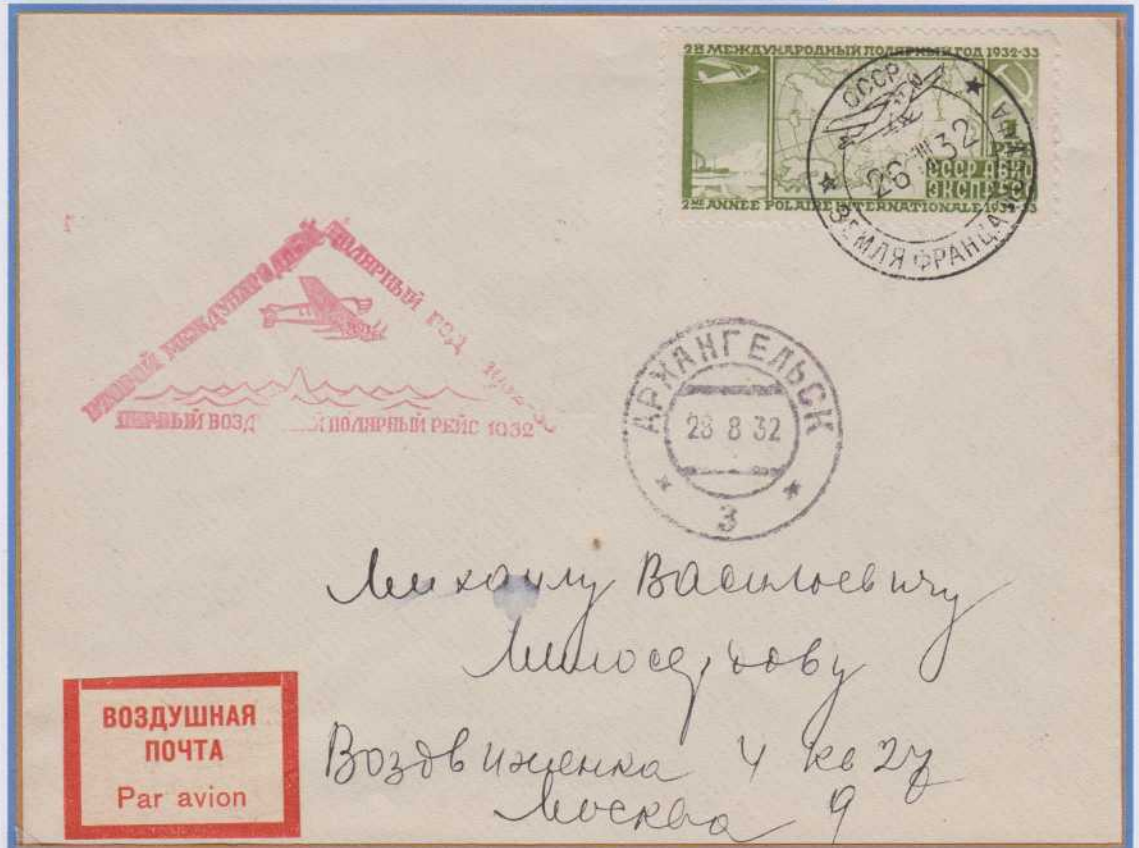 2Й МЕЖДУНАРОДНЫЙ ПОЛЯРНЫЙ ГОД 1932-33
СССР АВИА
ЭКСПРЕСС
2ME ANNÉE POLAIRE INTERNATIONALE 1932-33
СССР
26 VIII 32
ЗЕМЛЯ ФРАНЦА ИОСИФА
ВТОРОЙ МЕЖДУНАРОДНЫЙ ПОЛЯРНЫЙ ГОД
ПЕРВЫЙ ПОЛЯРНЫЙ РЕЙС 1932
АРХАНГЕЛЬСК
28 8 32
3
Михаилу Васильевичу
Милосердову
Воздвиженка 4 кв 27
Москва 9
ВОЗДУШНАЯ
ПОЧТА
Par avion